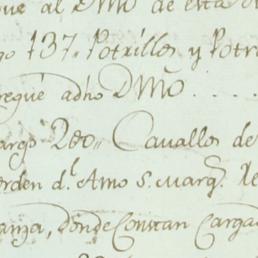 que al DMO de esta
137. Potrillos y Potr
tregué a dho DMO . . . .
argo 200 Cavallos de
orden d.l Amo S. Marq.s de
anza, donde Constan Carga